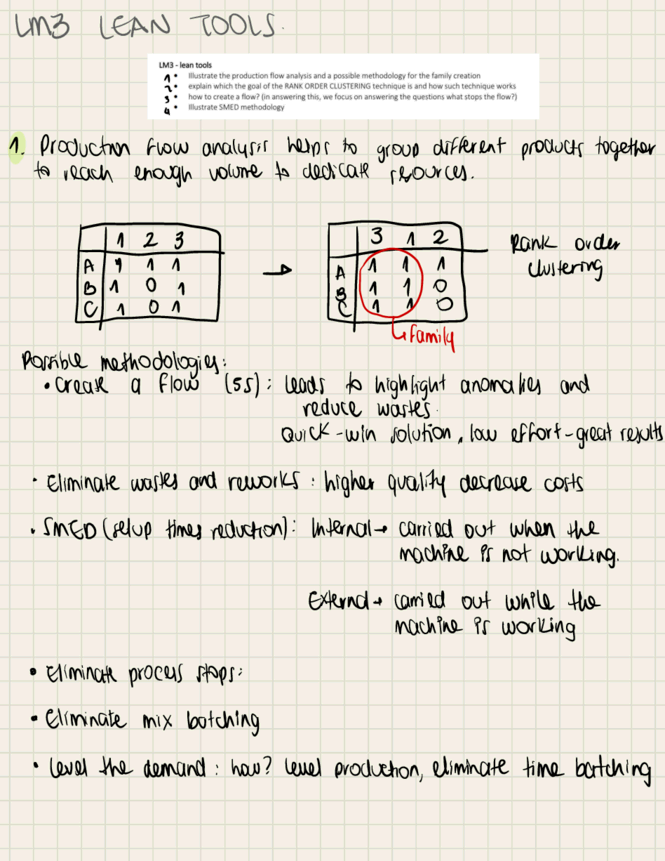 LM3 LEAN TOOLS.
LM3 - lean tools
1 • Illustrate the production flow analysis and a possible methodology for the family creation
2 • explain which the goal of the RANK ORDER CLUSTERING technique is and how such technique works
3 • how to create a flow? (in answering this, we focus on answering the questions what stops the flow?)
4 • Illustrate SMED methodology
1. Production flow analysis helps to group different products together
to reach enough volume to dedicate resources.
1 2 3
A 1 1 1
B 1 0 1
C 1 0 1
→
3 1 2
A 1 1 1
B 1 1 0
C 1 1 0
Rank order
clustering
↳ family
Possible methodologies:
• Create a flow (5S): leads to highlight anomalies and
reduce wastes.
Quick-win solution, low effort-great results
• Eliminate wastes and reworks: higher quality decrease costs
• SMED (setup times reduction): Internal → carried out when the
machine is not working.
External → carried out while the
machine is working
• Eliminate process stops:
• Eliminate mix batching
• Level the demand: how? level production, eliminate time batching